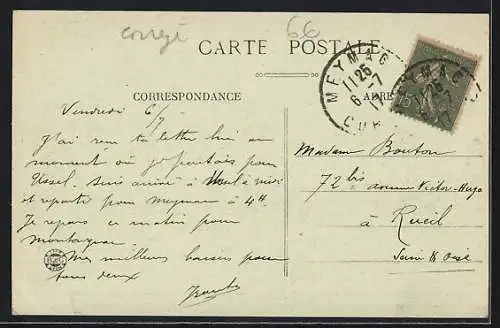 corrigé 66
CARTE POSTALE
CORRESPONDANCE
ADRE
MEYMAC
11 25
6-7
17
15
Vendredi 6/7
J'ai reçu ta lettre hier au
moment où je partais pour
Ussel. Suis arrivé à Ussel à midi
et reparti pour Meymac à 4H
Je repars ce matin pour
Mes meilleurs baisers pour
tous deux
Madame Bouton
72 bis avenue Victor-Hugo
à Rueil
Seine & Oise